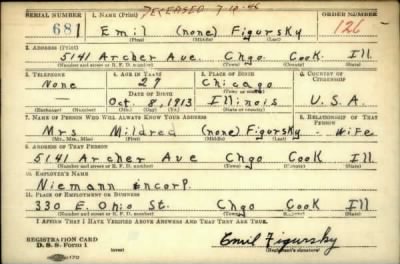 DECEASED 7-14-46
SERIAL NUMBER 1. NAME (Print) ORDER NUMBER
681 Emil (none) Figursky 126
(First) (Middle) (Last)
2. ADDRESS (Print)
5141 Archer Ave. Chgo Cook Ill.
(Number and street or R. F. D. number) (Town) (County) (State)
3. TELEPHONE 4. AGE IN YEARS 5. PLACE OF BIRTH 6. COUNTRY OF CITIZENSHIP
None 29 Chicago
DATE OF BIRTH (Town or county)
Oct 8, 1913 Illinois U.S.A.
(Exchange) (Number) (Mo.) (Day) (Yr.) (State or country)
7. NAME OF PERSON WHO WILL ALWAYS KNOW YOUR ADDRESS 8. RELATIONSHIP OF THAT PERSON
Mrs Mildred (none) Figursky - Wife
(Mr., Mrs., Miss) (First) (Middle) (Last)
9. ADDRESS OF THAT PERSON
5141 Archer Ave Chgo Cook Ill.
(Number and street or R. F. D. number) (Town) (County) (State)
10. EMPLOYER'S NAME
Niemann Encorp.
11. PLACE OF EMPLOYMENT OR BUSINESS
330 E. Ohio St. Chgo Cook Ill
(Number and street or R. F. D. number) (Town) (County) (State)
I AFFIRM THAT I HAVE VERIFIED ABOVE ANSWERS AND THAT THEY ARE TRUE.
REGISTRATION CARD
D. S. S. Form 1 (over) Emil Figursky
(Registrant's signature)